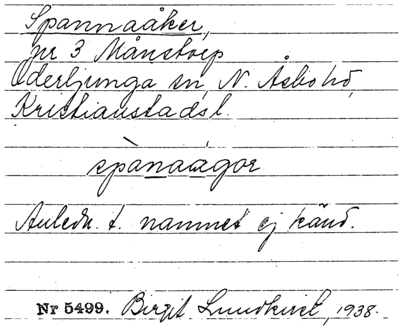 Spannaåker,
nr 3 Månstorp
Oderljunga sn, N. Åsbo hd,
Kristianstads l.
spànaágor
Anledn. t. namnet ej känd.
Nr 5499. Birgit Lundkvist, 1938.